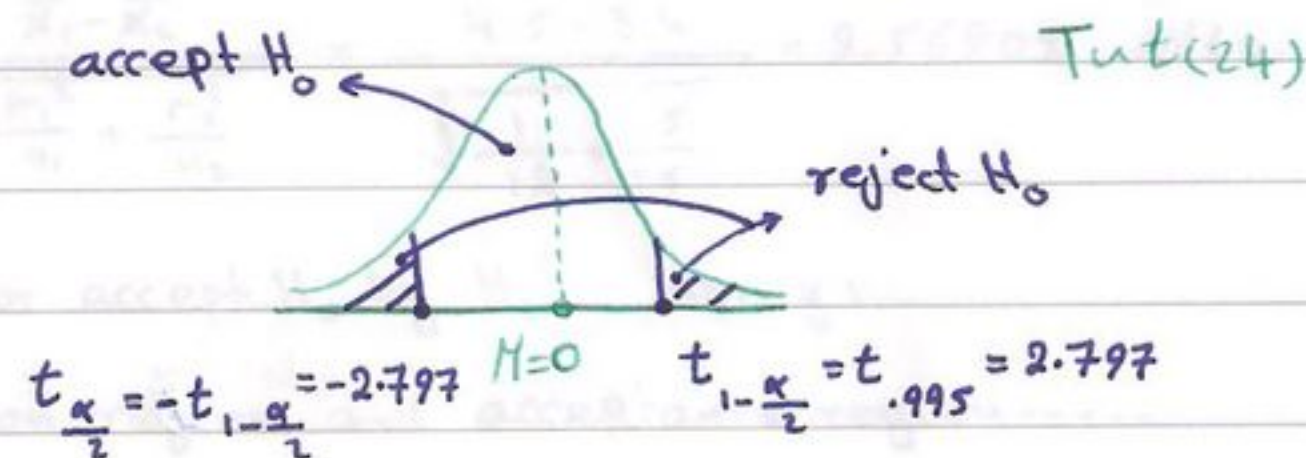 Tut(24)
accept H₀
reject H₀
t_{α/2} = -t_{1-α/2} = -2.797
M=0
t_{1-α/2} = t_{.995} = 2.797